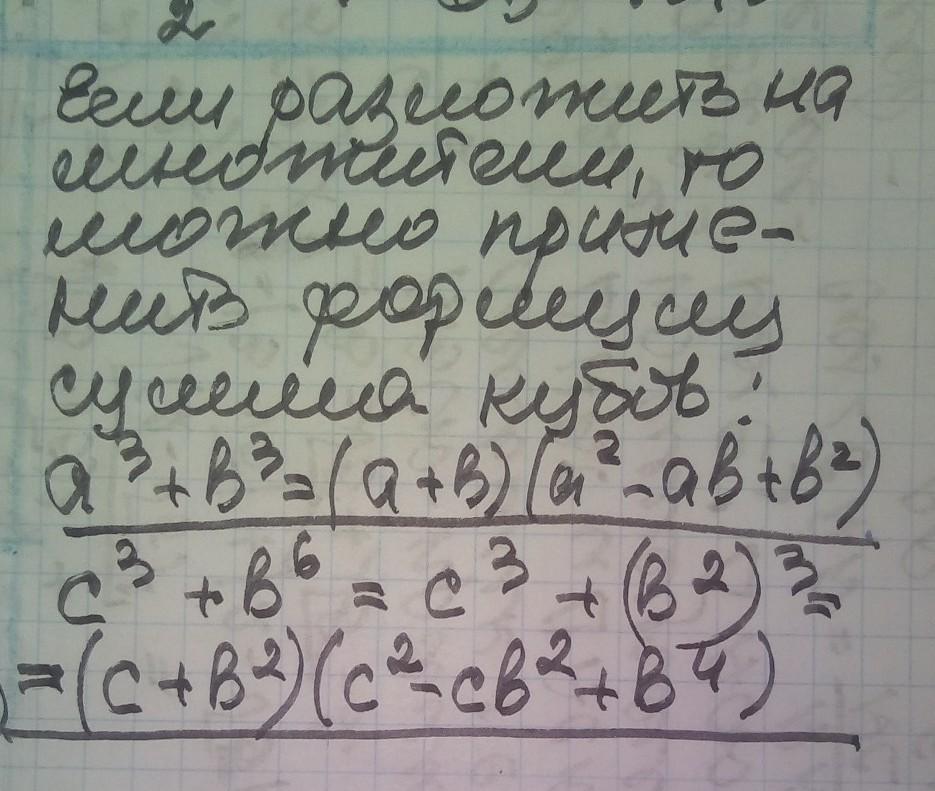 Если разложить на
множители, то
можно приме-
нить формулу
сумма кубов:
a³+b³=(a+b)(a²-ab+b²)
c³+b⁶=c³+(b²)³=
=(c+b²)(c²-cb²+b⁴)